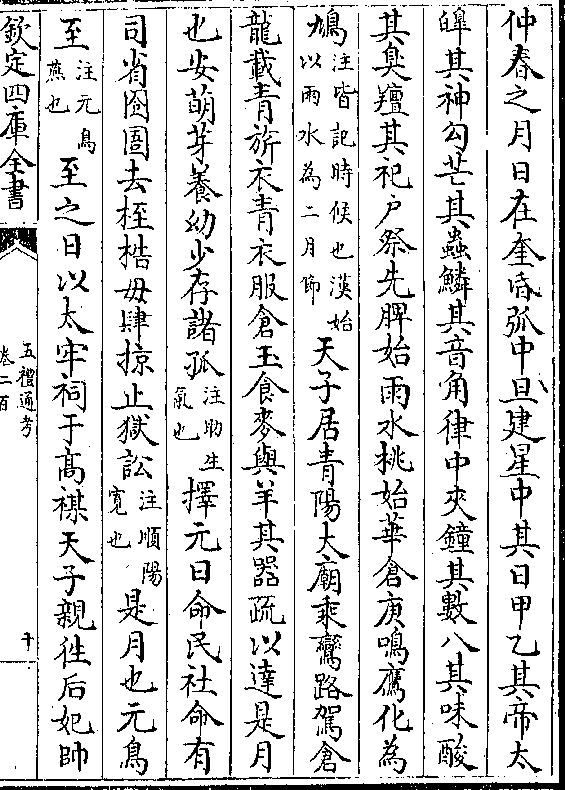 仲春之月日在奎昏弧中旦建星中其日甲乙其帝太
皥其神勾芒其蟲鱗其音角律中夾鐘其數八其味酸
其臭羶其祀戶祭先脾始雨水桃始華倉庚鳴鷹化為
鳩注皆記時候也漢始以雨水為二月節天子居青陽大廟乘鸞路駕倉
龍載青旂衣青衣服倉玉食麥與羊其器疏以達是月
也安萌芽養幼少存諸孤注助生氣也擇元日命民社命有
司省囹圄去桎梏毋肆掠止獄訟注順陽寛也是月也元鳥
至注元鳥燕也至之日以太牢祠于髙禖天子親徃后妃帥
欽定四庫全書
五禮通考
卷二百
十